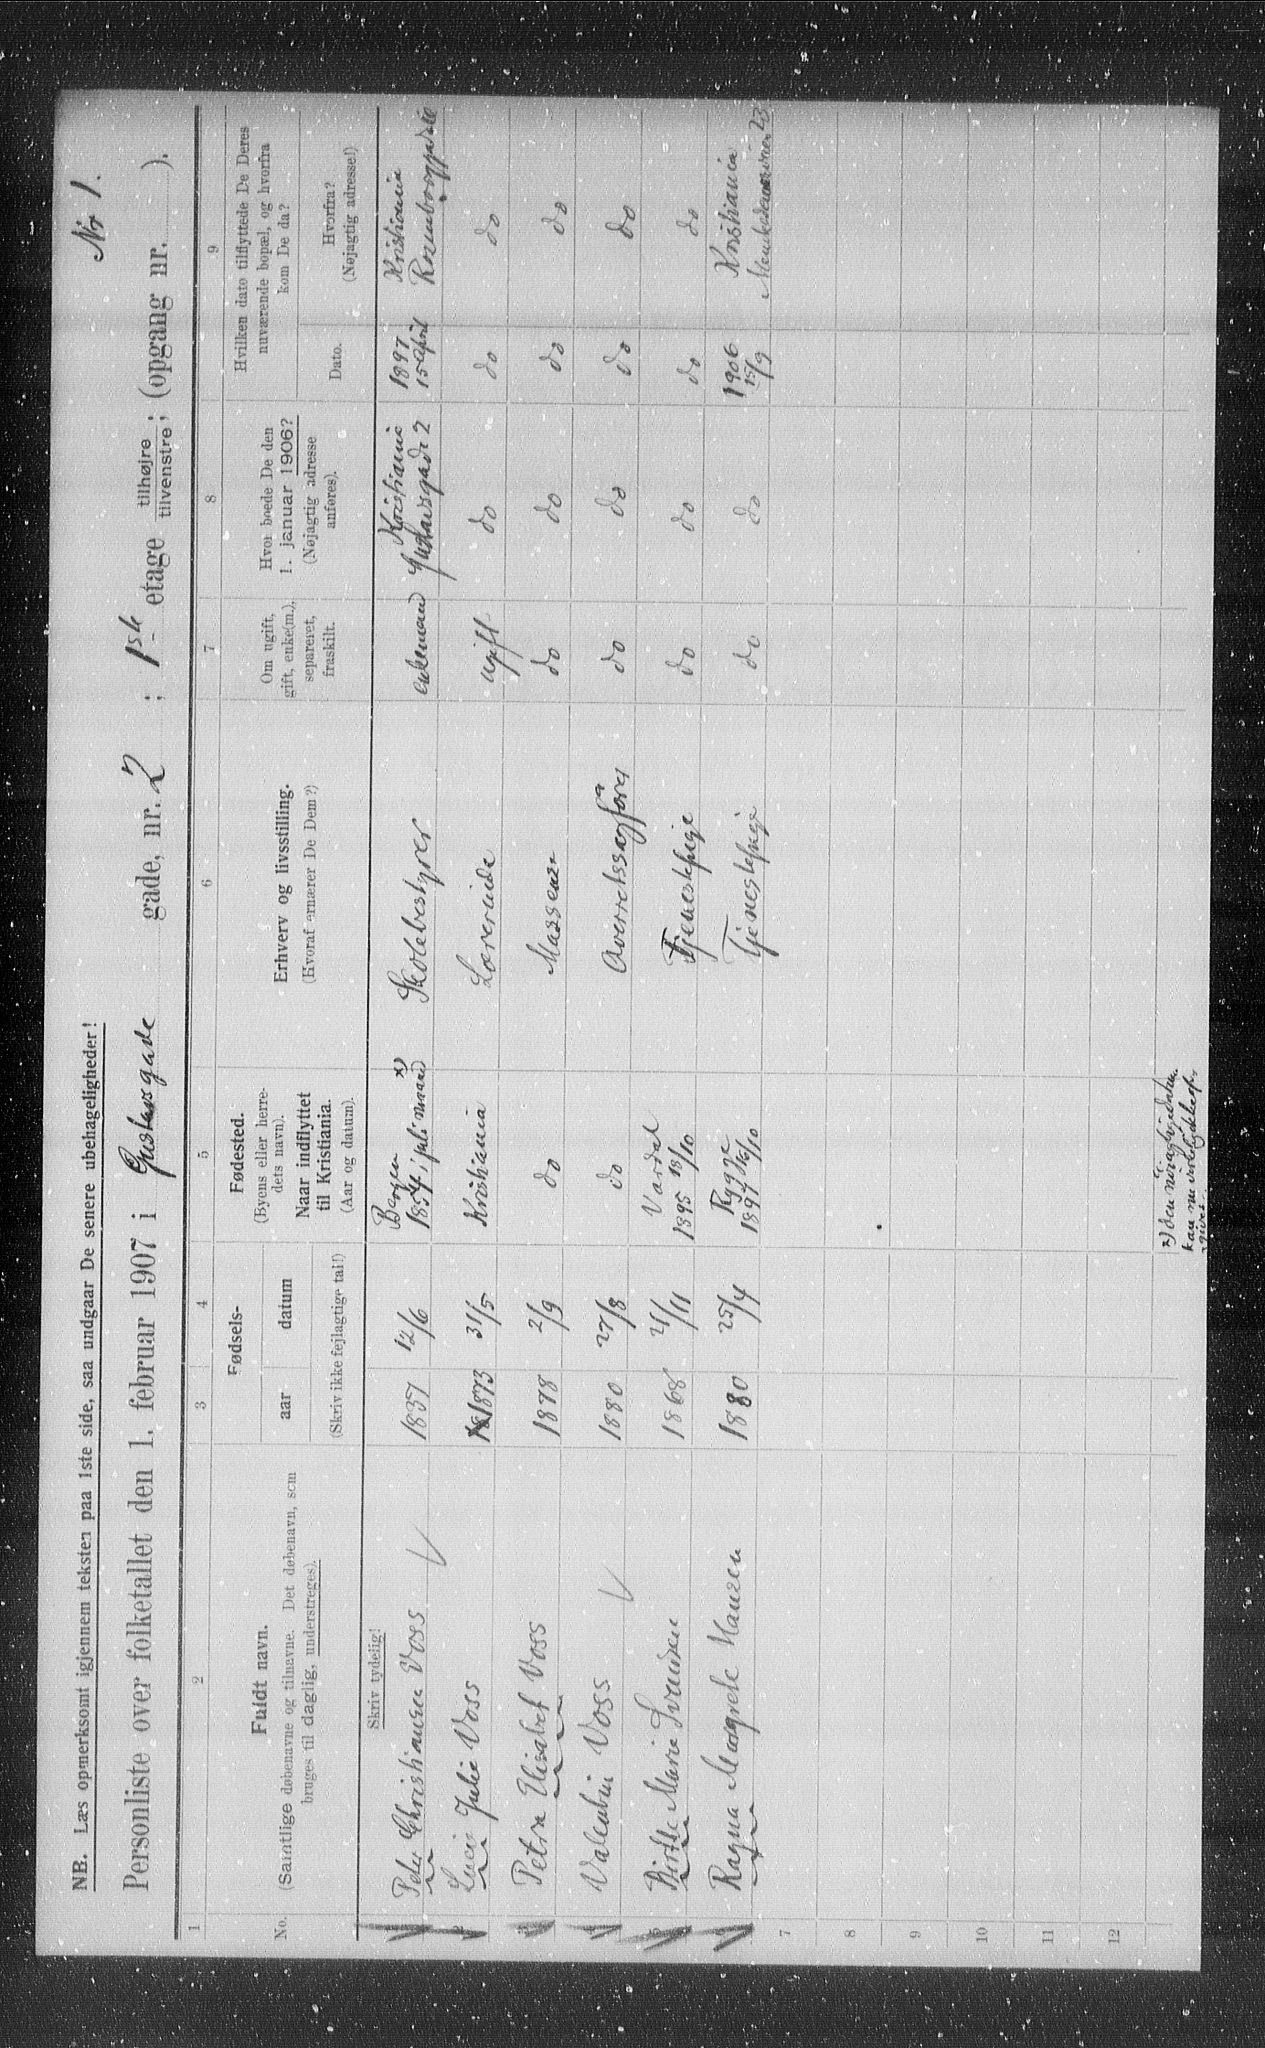 Nr 1.
NB. Læs opmerksomt igjennem teksten paa 1ste side, saa undgaar De senere ubehageligheder!
Personliste over folketallet den 1. februar 1907 i Gustavsgade gade, nr. 2 ; 1ste etage tilhøjre / tilvenstre ; (opgang nr. ).
1 2 3 4 5 6 7 8 9
No.
Fuldt navn.
(Samtlige døbenavne og tilnavne. Det døbenavn, som
bruges til daglig, understreges).
Fødsels-
aar datum
(Skriv ikke fejlagtige tal!)
Fødested.
(Byens eller herre-
dets navn).
Naar indflyttet
til Kristiania.
(Aar og datum).
Erhverv og livsstilling.
(Hvoraf ernærer De Dem?)
Om ugift,
gift, enke(m.),
separeret,
fraskilt.
Hvor boede De den
1. januar 1906?
(Nøjagtig adresse
anføres).
Hvilken dato tilflyttede De Deres
nuværende bopæl, og hvorfra
kom De da?
Dato.
Hvorfra?
(Nøjagtig adresse!)
Skriv tydelig!
1 Peter Christiansen Voss 1837 12/6 Bergen 1854, i juli maaned x) Skolebestyrer enkemand Kristiania Gustavsgade 2 1897 15 april Kristiania
2 Lucie Julie Voss 1873 31/5 Kristiania Lærerinde ugift do do do
3 Petra Elisabet Voss 1878 2/9 do Massøse do do do do
4 Valentin Voss 1880 27/8 do Overretssagfører do do do do
5 Birthe Marie Svendsen 1868 21/11 Vardal 1895 13/10 Tjenestepige do do do do
6 Ragna Margrete Hansen 1880 25/4 Rygge 1897 16/10 Tjenestepige do do 1906 15/9 Kristiania 23
7
8
9
10
11
12
x) den nøiagtige datum
kan nu